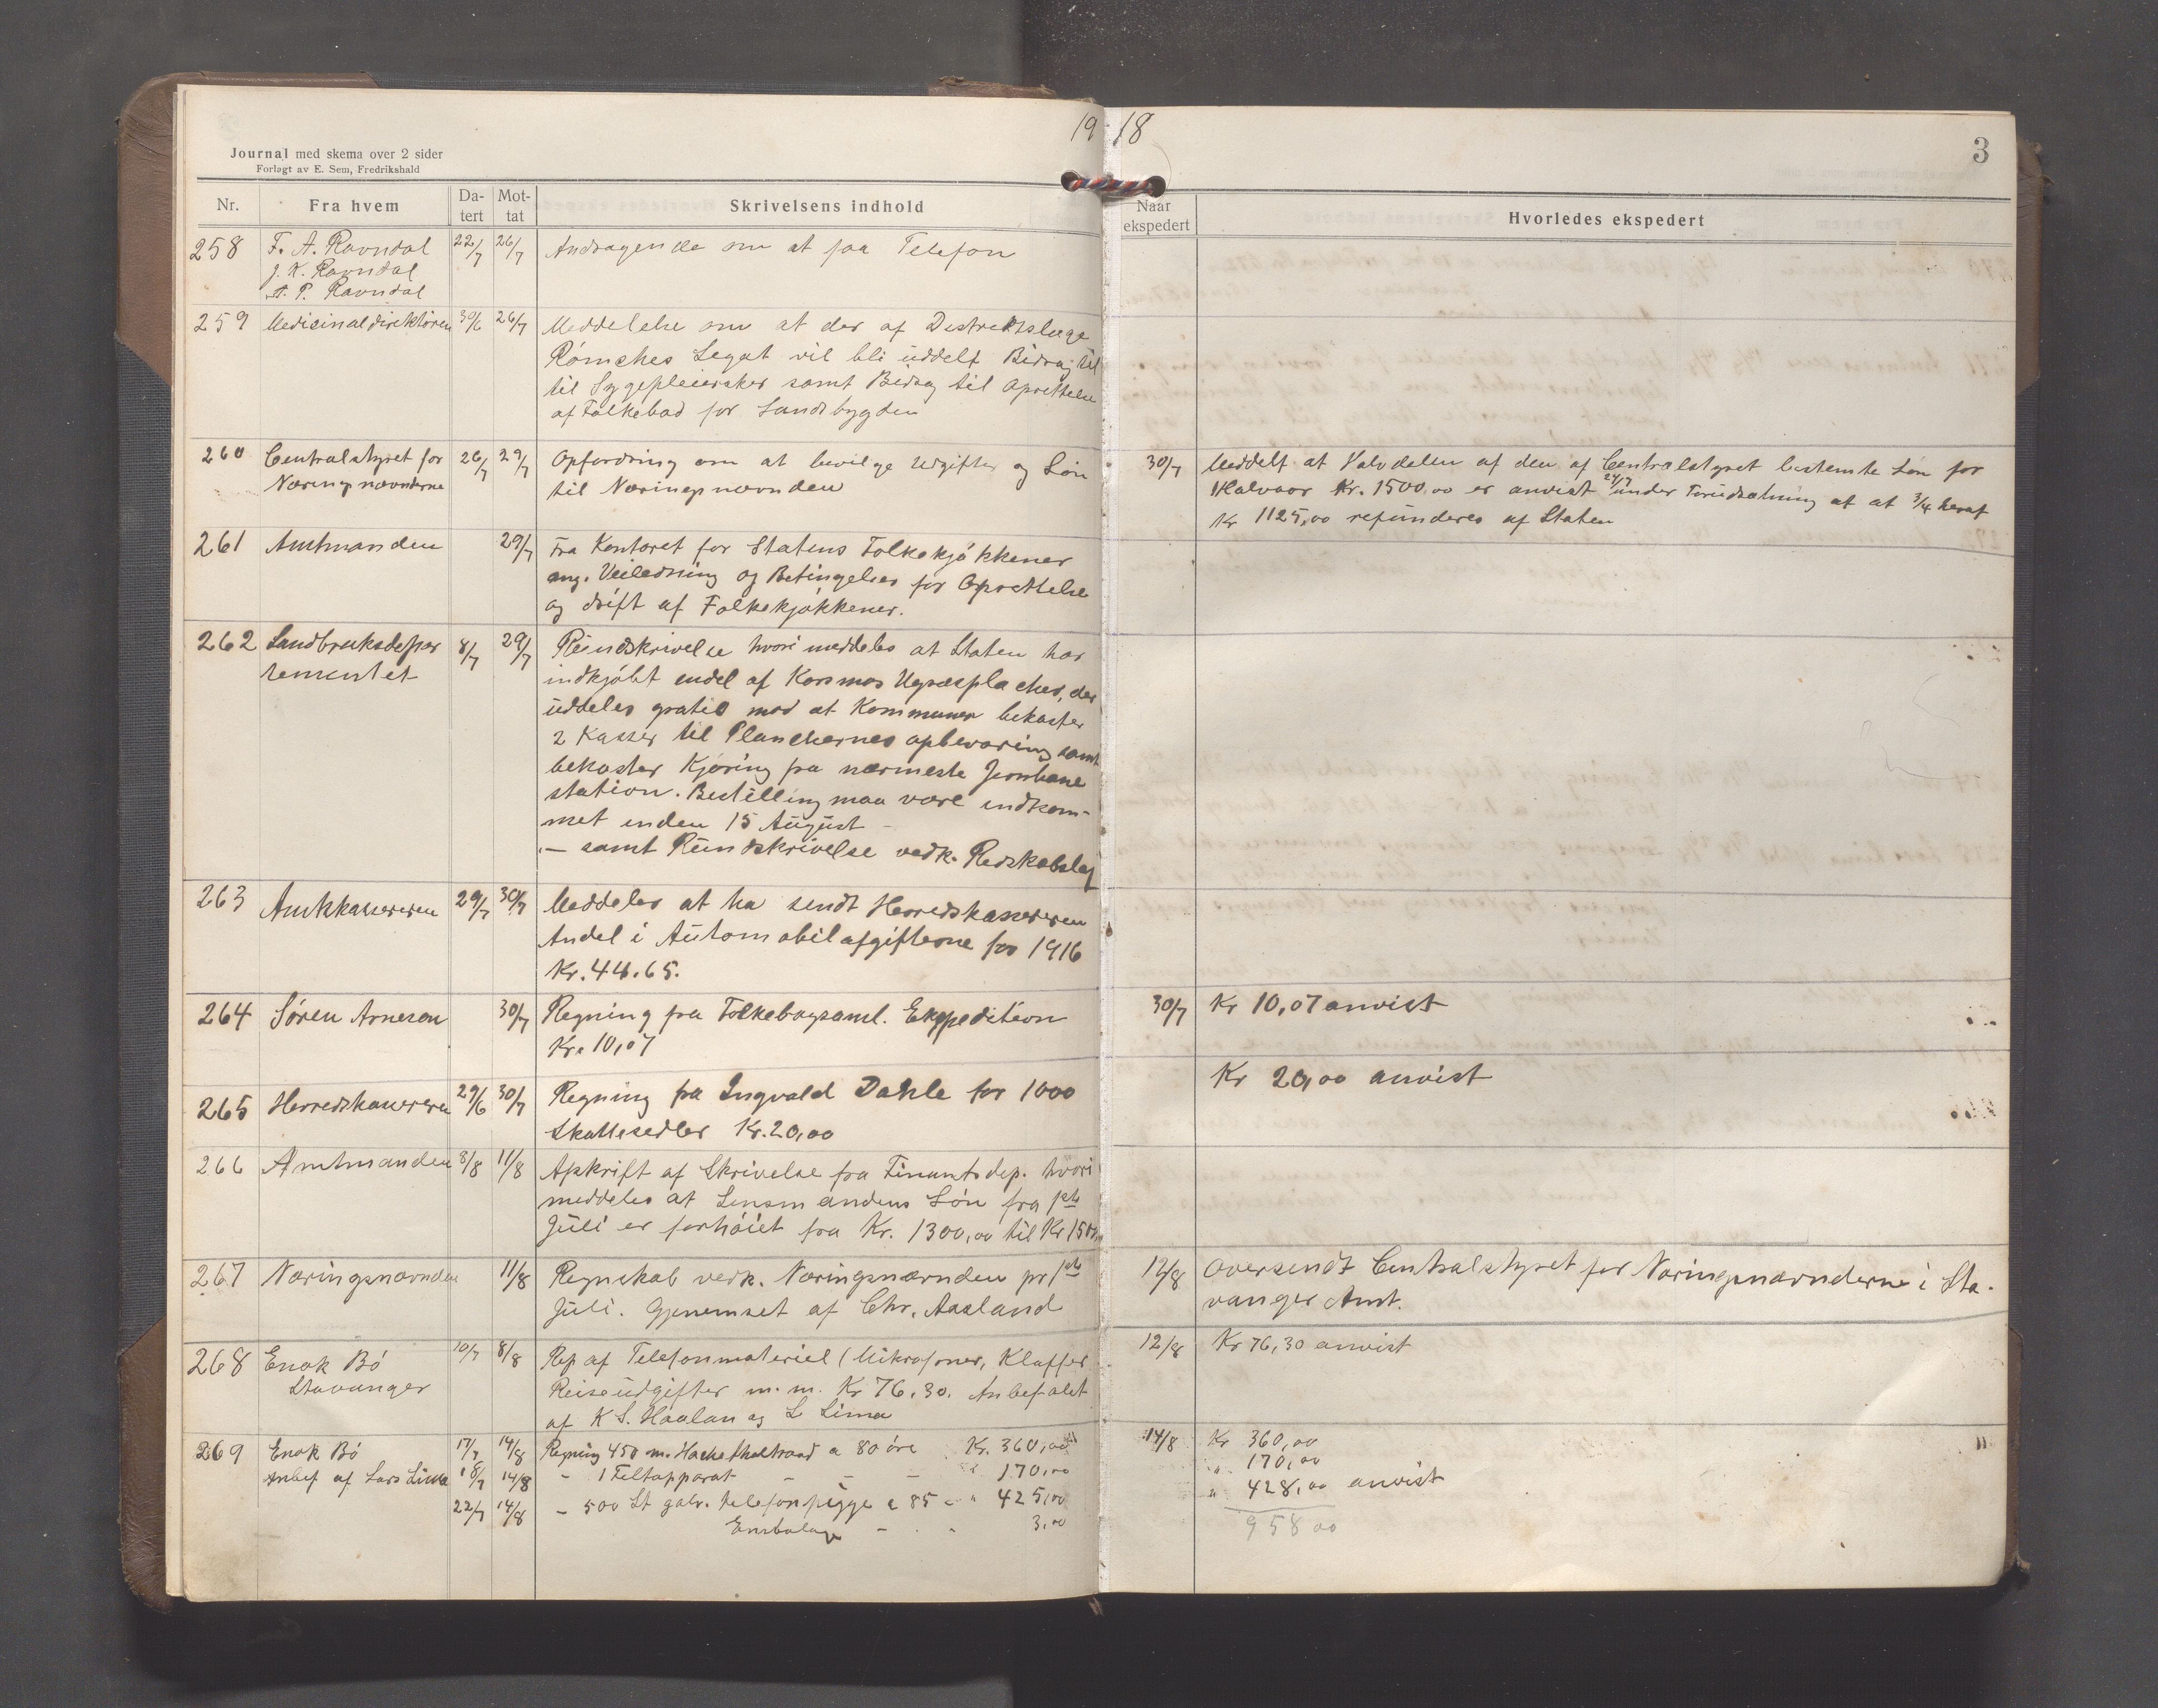 19 18
3
Journal med skema over 2 sider
Forlagt av E. Sem, Fredrikshald
Nr.
Fra hvem
Da-
tert
Mot-
tat
Skrivelsens indhold
Naar
ekspedert
Hvorledes ekspedert
258 F. A. Ravndal 22/7 26/7 Andragende om at faa Telefon
J. K. Ravndal
A. P. Ravndal
259 Medicinaldirektören 30/6 26/7 Meddelelse om at der af Distriktslæge
Römckes Legat vil bli uddelt Bidrag til
til Sygepleiersker samt Bidrag til Oprettelse
af Folkebad for Landsbygden
260 Centralstyret for 26/7 29/7 Opfordring om at bevilge Udgifter og Løn
Næringsnævnderne til Næringsnævnden
30/7 Meddelt at Halvdelen af den af Centralstyret bestemte Løn for
Halvaar Kr. 1500,00 er anvist 24/7 under Forudsætning af at 3/4 heraf
Kr 1125,00 refunderes af Staten
261 Amtmanden 29/7 Fra Kontoret for Statens Folkekjökkener
ang. Veiledning og Betingelser for Oprettelse
og drift af Folkekjökkener.
262 Landbruksdepar 8/7 29/7 Rundskrivelse hvori meddeles at Staten har
tementet indkjöbt endel af Korsmos Ugræsplacher, der
uddeles gratis mod at Kommunen bekoster
2 Kasser til Planchernes opbevaring samt
bekoster Kjøring fra nærmeste Jernbane
station. Bestilling maa være indkom-
met inden 15 August -
- samt Rundskrivelse vedk. Redskabslag
263 Amtskassereren 29/7 30/7 Meddeles at ha sendt Herredskassereren
Andel i Automobilafgifterne for 1916
Kr. 44.65.
264 Sören Arnesen 30/7 Regning fra Folkebogsaml. Ekspedition
Kr. 10,07
30/7 Kr 10,07 anvist
265 Herredskassereren 29/6 30/7 Regning fra Ingvald Dahle for 1000
Skattesedler Kr. 20,00
Kr 20,00 anvist
266 Amtmanden 8/8 11/8 Afskrift af Skrivelse fra Finantsdep. hvori
meddeles at Lensmandens Lön fra 1ste
Juli er forhöiet fra Kr. 1300,00 til Kr 1500,
267 Næringsnævnden 11/8 Regnskab vedk. Næringsnævnden pr 1ste
Juli. Gjenemset af Chr. Aasland
12/8 Oversendt Centralstyret for Næringsnævnderne i Sta-
vanger Amt.
268 Enok Bö 10/7 8/8 Rep af Telefonmateriel (Mikrofoner, Klaffer
Stavanger Reiseudgifter m. m. Kr 76.30. Anbefalet
af K S. Haaland og L Lima
12/8 Kr 76,30 anvist
269 Enok Bö 17/7 14/8 Regning 450 m. Hackethaltraad a 80 öre Kr. 360,00
Anbef af Lars Lima 18/7 14/8 - 1 Feltapparat - - - " 170,00
22/7 14/8 - 500 St galv. telefonpigge a 85 - " 425,00
Embalage - " 3,00
14/8 Kr 360,00
" 170,00
" 428,00 anvist
958 00